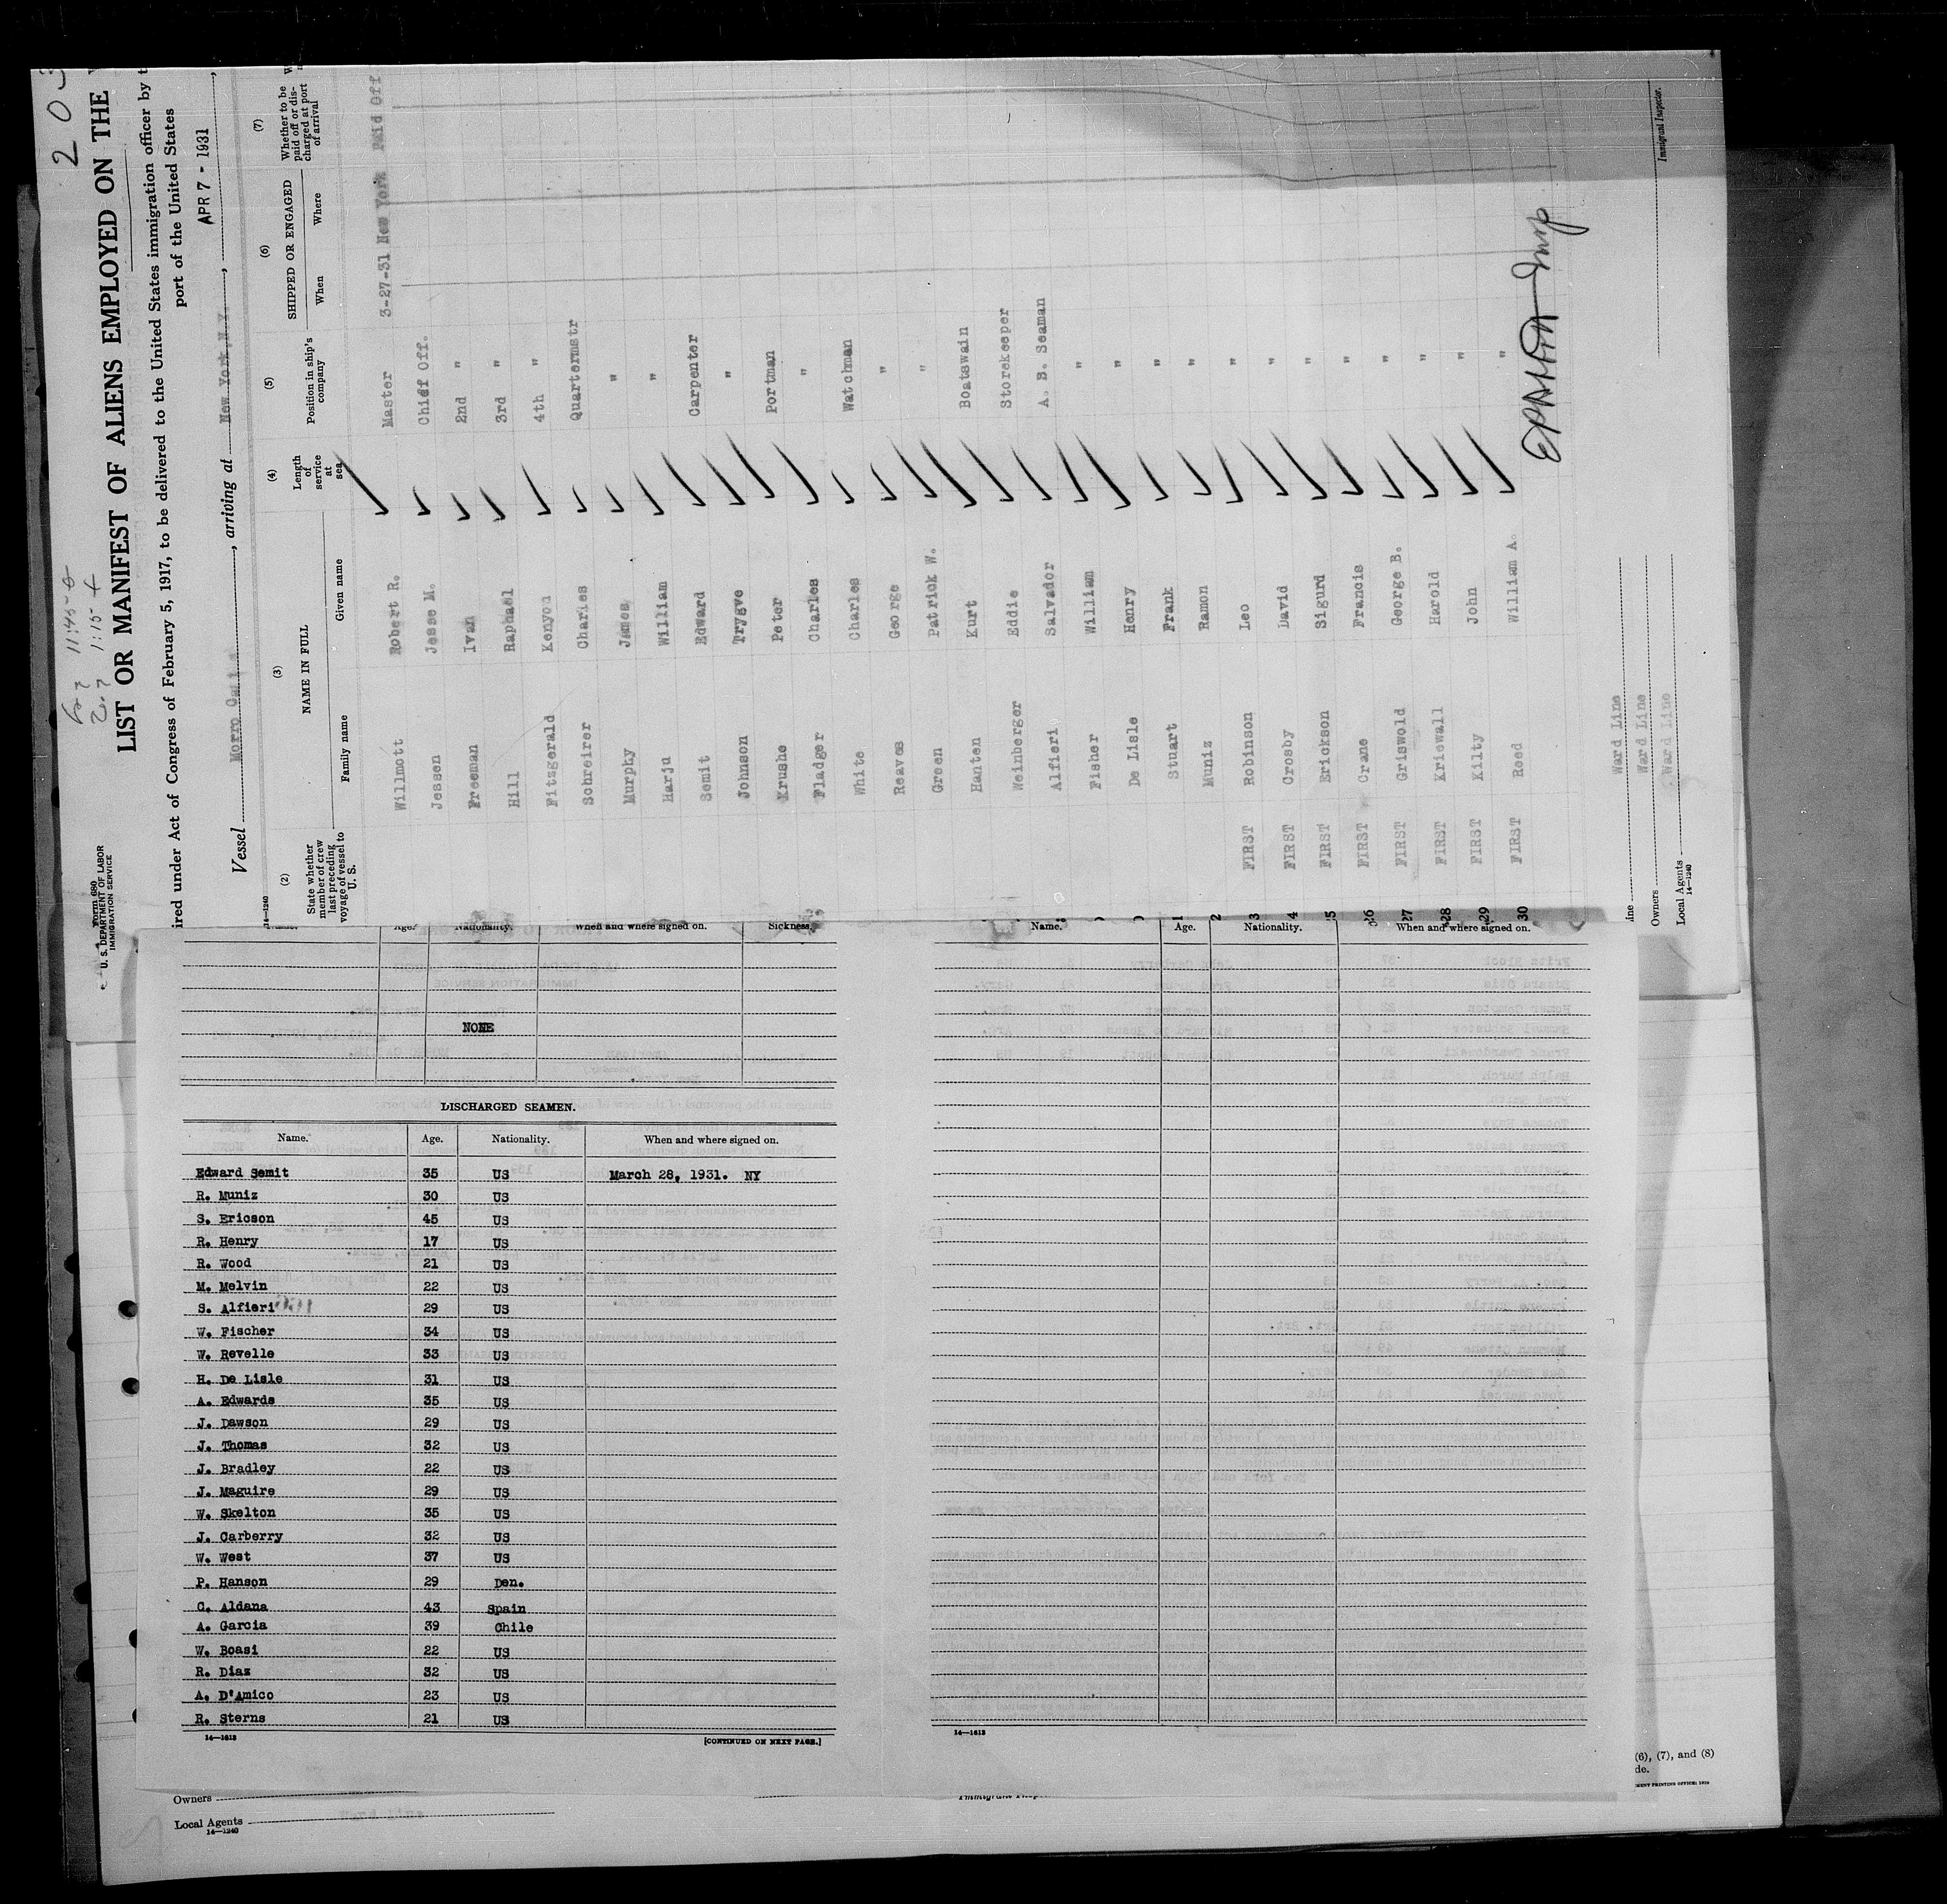 203
11:45
1:15
Form 680
U. S. DEPARTMENT OF LABOR
IMMIGRATION SERVICE
LIST OR MANIFEST OF ALIENS EMPLOYED ON THE
ired under Act of Congress of February 5, 1917, to be delivered to the United States immigration officer by t
port of the United States
Vessel Morro Castle, arriving at New York, N.Y., APR 7 - 1931,
14—1240
(2) (3) (4) (5) (6) (7)
State whether member of crew last preceding voyage of vessel to U. S.
NAME IN FULL
Family name Given name
Length of service at sea
Position in ship's company
SHIPPED OR ENGAGED
When Where
Whether to be paid off or discharged at port of arrival
Willmott Robert R. Master 3-27-31 New York Paid Off
Jessen Jesse M. Chief Off.
Freeman Ivan 2nd "
Hill Raphael 3rd "
Fitzgerald Kenyon 4th "
Schreirer Charles Quartermstr
Murphy James "
Harju William "
Semit Edward Carpenter
Johnson Trygve "
Krushe Peter Portman
Fladger Charles "
White Charles Watchman
Reaves George "
Green Patrick W. "
Hanten Kurt Boatswain
Weinberger Eddie Storekeeper
Alfieri Salvador A. B. Seaman
Fisher William "
De Lisle Henry "
1 Stuart Frank "
2 Muniz Ramon "
3 FIRST Robinson Leo "
4 FIRST Crosby David "
25 FIRST Erickson Sigurd "
26 FIRST Crane Francis "
27 FIRST Griswold George B. "
28 FIRST Kriewall Harold "
29 FIRST Kilty John "
30 FIRST Reed William A. "
ine Ward Line
Owners Ward Line
Local Agents Ward Line
14—1240
Immigrant Inspector.
Name. Age. Nationality. When and where signed on. Sickness.
NONE
DISCHARGED SEAMEN.
Name. Age. Nationality. When and where signed on.
Edward Semit 35 US March 28, 1931. NY
R. Muniz 30 US
S. Ericson 45 US
R. Henry 17 US
R. Wood 21 US
M. Melvin 22 US
S. Alfieri 29 US
W. Fischer 34 US
W. Revelle 33 US
H. De Lisle 31 US
A. Edwards 35 US
J. Dawson 29 US
J. Thomas 32 US
J. Bradley 22 US
J. Maguire 29 US
W. Skelton 35 US
J. Carberry 32 US
W. West 37 US
P. Hanson 29 Den.
C. Aldana 43 Spain
A. Garcia 39 Chile
W. Boasi 22 US
R. Diaz 32 US
A. D'Amico 23 US
R. Sterns 21 US
14—1613 [CONTINUED ON NEXT PAGE.]
Name. Age. Nationality. When and where signed on.
14—1613
(6), (7), and (8)
de.
MENT PRINTING OFFICE: 1929
Owners
Local Agents Ward Line
14—1240